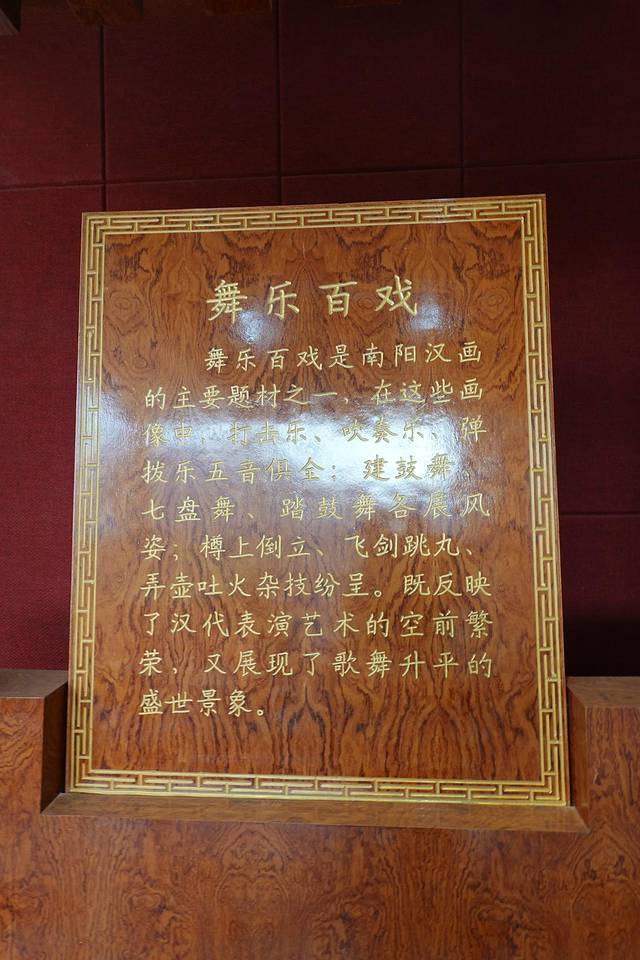 舞乐百戏
舞乐百戏是南阳汉画
的主要题材之一，在这些画
像中，打击乐、吹奏乐、弹
拨乐五音俱全；建鼓舞、
七盘舞、踏鼓舞各展风
姿；樽上倒立、飞剑跳丸、
弄壶吐火杂技纷呈。既反映
了汉代表演艺术的空前繁
荣，又展现了歌舞升平的
盛世景象。